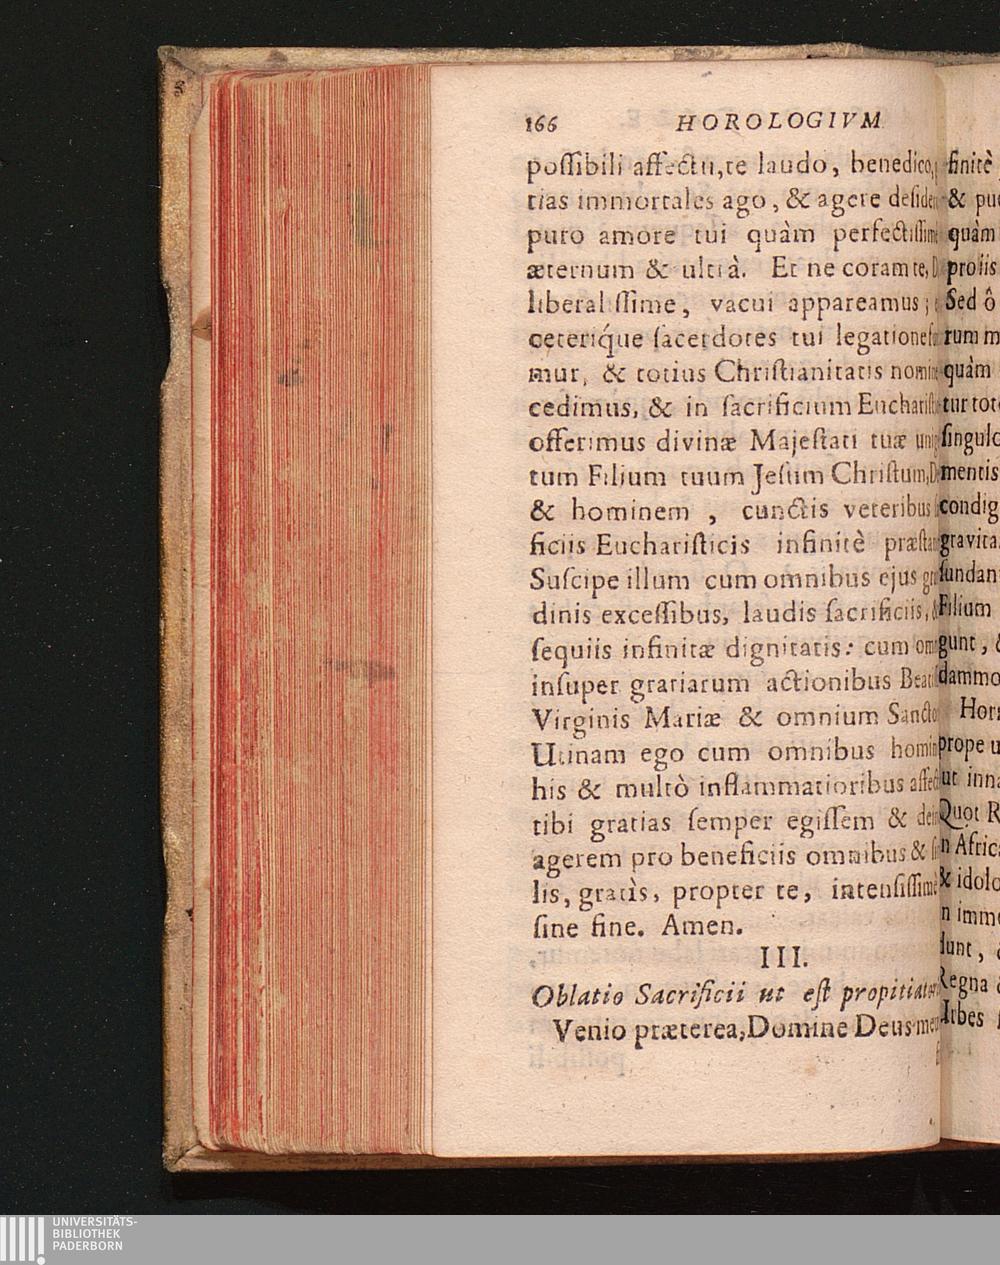 166 HOROLOGIVM
poſſibili affectu, te laudo, benedico,
tias immortales ago, & agere deſide
puro amore tui quàm perfectiſſim
æternum & ultrà. Et ne coram te, D
liberaliſſime, vacui appareamus;
ceteriq́ue ſacerdotes tui legatione
mur, & totius Chriſtianitatis nomi
cedimus, & in ſacrificium Euchariſt
offerimus divinæ Majeſtati tuæ uni
tum Filium tuum Jeſum Chriſtum, D
& hominem , cunctis veteribus
ficiis Euchariſticis infinitè præſta
Suſcipe illum cum omnibus ejus gra
dinis exceſſibus, laudis ſacrificiis, &
ſequiis infinitæ dignitatis: cum om
inſuper gratiarum actionibus Beat
Virginis Mariæ & omnium Sancto
Utinam ego cum omnibus homin
his & multò inflammatioribus affect
tibi gratias ſemper egiſſem & dein
agerem pro beneficiis omnibus & ſi
lis, gratìs, propter te, intenſiſſimè
ſine fine. Amen.
III.
Oblatio Sacrificii ut eſt propitiato
Venio præterea, Domine Deus me
finitè
& pu
quàm
proiis
Sed ô
rum m
quàm
tur tot
ſingulo
mentis
condig
gravita
fundan
Filium
gunt, &
dammo
Hor
prope u
ut inna
Quot R
n Afric
& idolo
n imm
dunt,
Regna
Urbes
UNIVERSITÄTS-
BIBLIOTHEK
PADERBORN